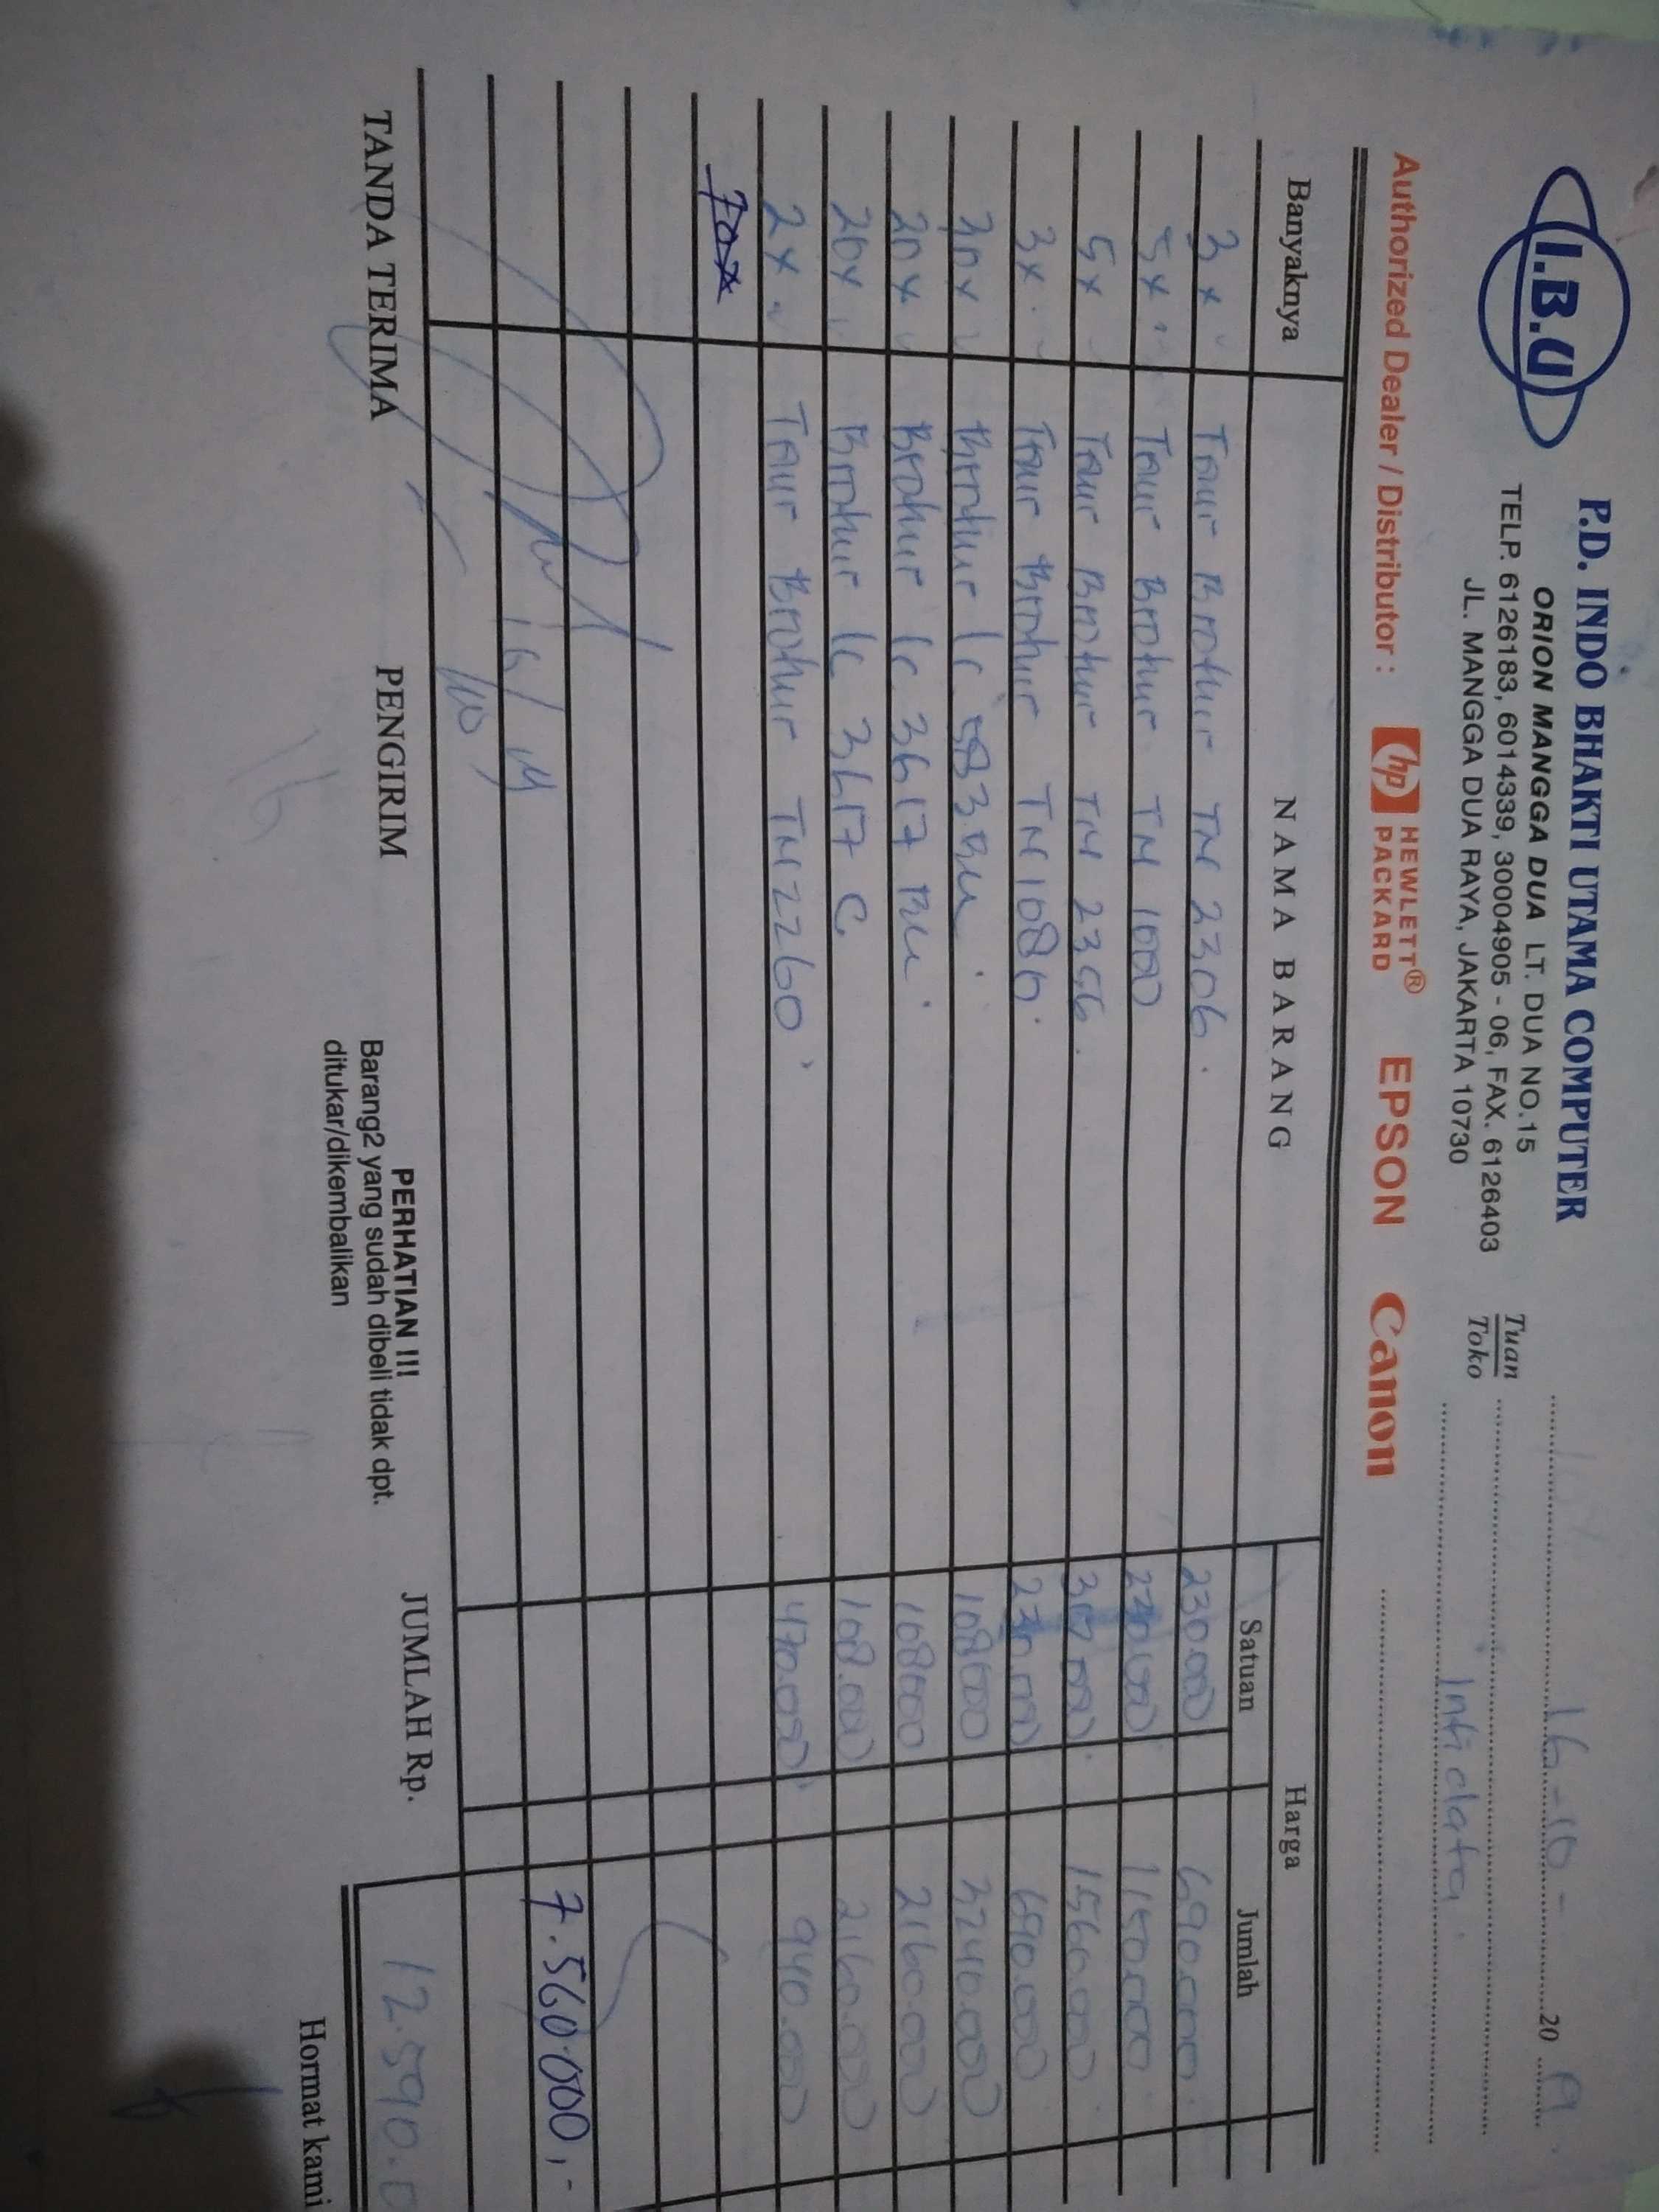 I.B.U
P.D. INDO BHAKTI UTAMA COMPUTER
ORION MANGGA DUA LT. DUA NO.15
TELP. 6126183, 6014339, 30004905 - 06, FAX. 6126403
JL. MANGGA DUA RAYA, JAKARTA 10730
16-10- 20 19
Tuan
Toko
Inti data
Authorized Dealer / Distributor : hp HEWLETT® PACKARD EPSON Canon
Banyaknya NAMA BARANG Harga
Satuan Jumlah
3x Brother TN 2306 230.000 690.000
5x Brother TN 1000 230.000 1150.000
5x Brother TN 2356 1560.000
3x Brother TN 1080 230.000 690.000
30x Brother 108000 3240.000
20x Brother Lc 3617 108000 2160.000
20x Brother Lc 3617 C 108.000 2160.000
2x Brother TN 2260 470.000 940.000
70x
7.560.000,-
16/19
10
TANDA TERIMA PENGIRIM
PERHATIAN !!!
Barang2 yang sudah dibeli tidak dpt.
ditukar/dikembalikan
JUMLAH Rp. 12.590.0
Hormat kami